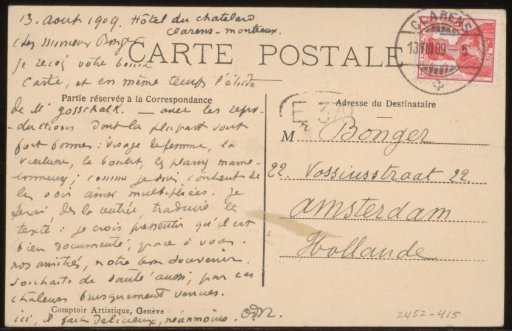 13. Août 1909. Hôtel du Chatelard
Clarens-Montreux.
Cher Monsieur Bonger
CARTE POSTALE
je reçois votre bonne
Carte, et en même temps l'étude
Partie réservée à la Correspondance
de Mr Gosschalk. — avec les repro-
ductions dont la plupart sont
fort bonnes: visage de femme, la
voiture, le
comme je suis content de
les voir ainsi multipliées. Je
ferai, dès la rentrée, traduire le
texte: je crois pressentir qu'il est
bien documenté, grâce à vous.
nos amitiés, notre bon souvenir.
souhaits de santé aussi, par ces
chaleurs brusquement venues.
ici, il fait délicieux, néanmoins.
Comptoir Artistique, Genève
CLARENS
13.VIII.09
E 34
Adresse du Destinataire
M Bonger
22. Vossiusstraat 22.
Amsterdam
Hollande
2452-415